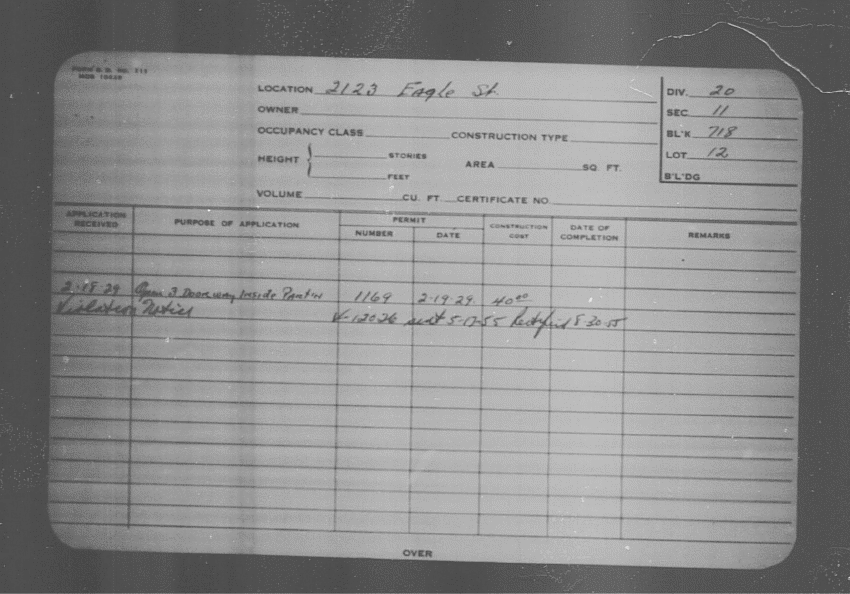 FORM S. D. No. 311
LOCATION 2123 Eagle St.
OWNER
OCCUPANCY CLASS CONSTRUCTION TYPE
HEIGHT STORIES
FEET
AREA SQ. FT.
VOLUME CU. FT. CERTIFICATE NO.
DIV. 20
SEC. 11
BL'K 718
LOT 12
B'L'DG
APPLICATION RECEIVED
PURPOSE OF APPLICATION
PERMIT
NUMBER DATE
CONSTRUCTION COST
DATE OF COMPLETION
REMARKS
2-18-29 Open 3 Doorway Inside Part'n 1169 2-19-29 40 00
Violation Notice V-12026 sent 5-17-55 Rectified 8-30-55
OVER